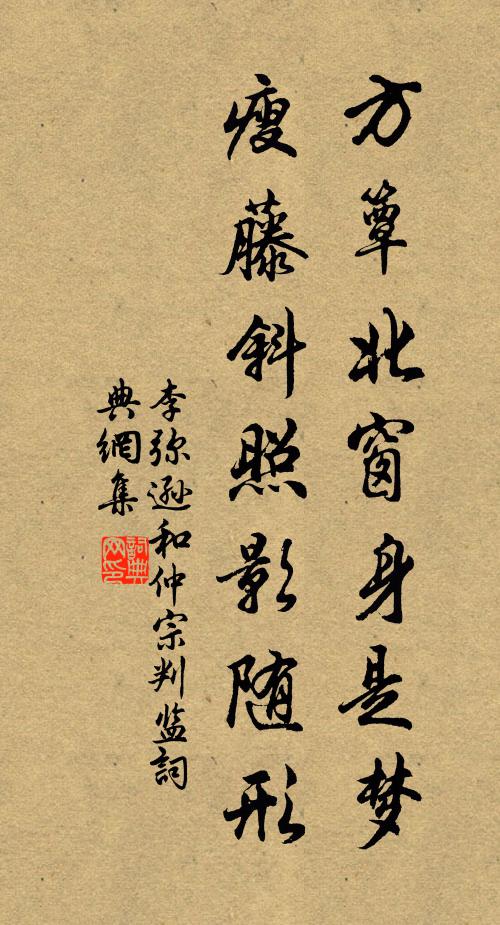 方簟北窗身是梦
瘦藤斜照影随形
李弥逊和仲宗判监詞
典網集
詞典
网印